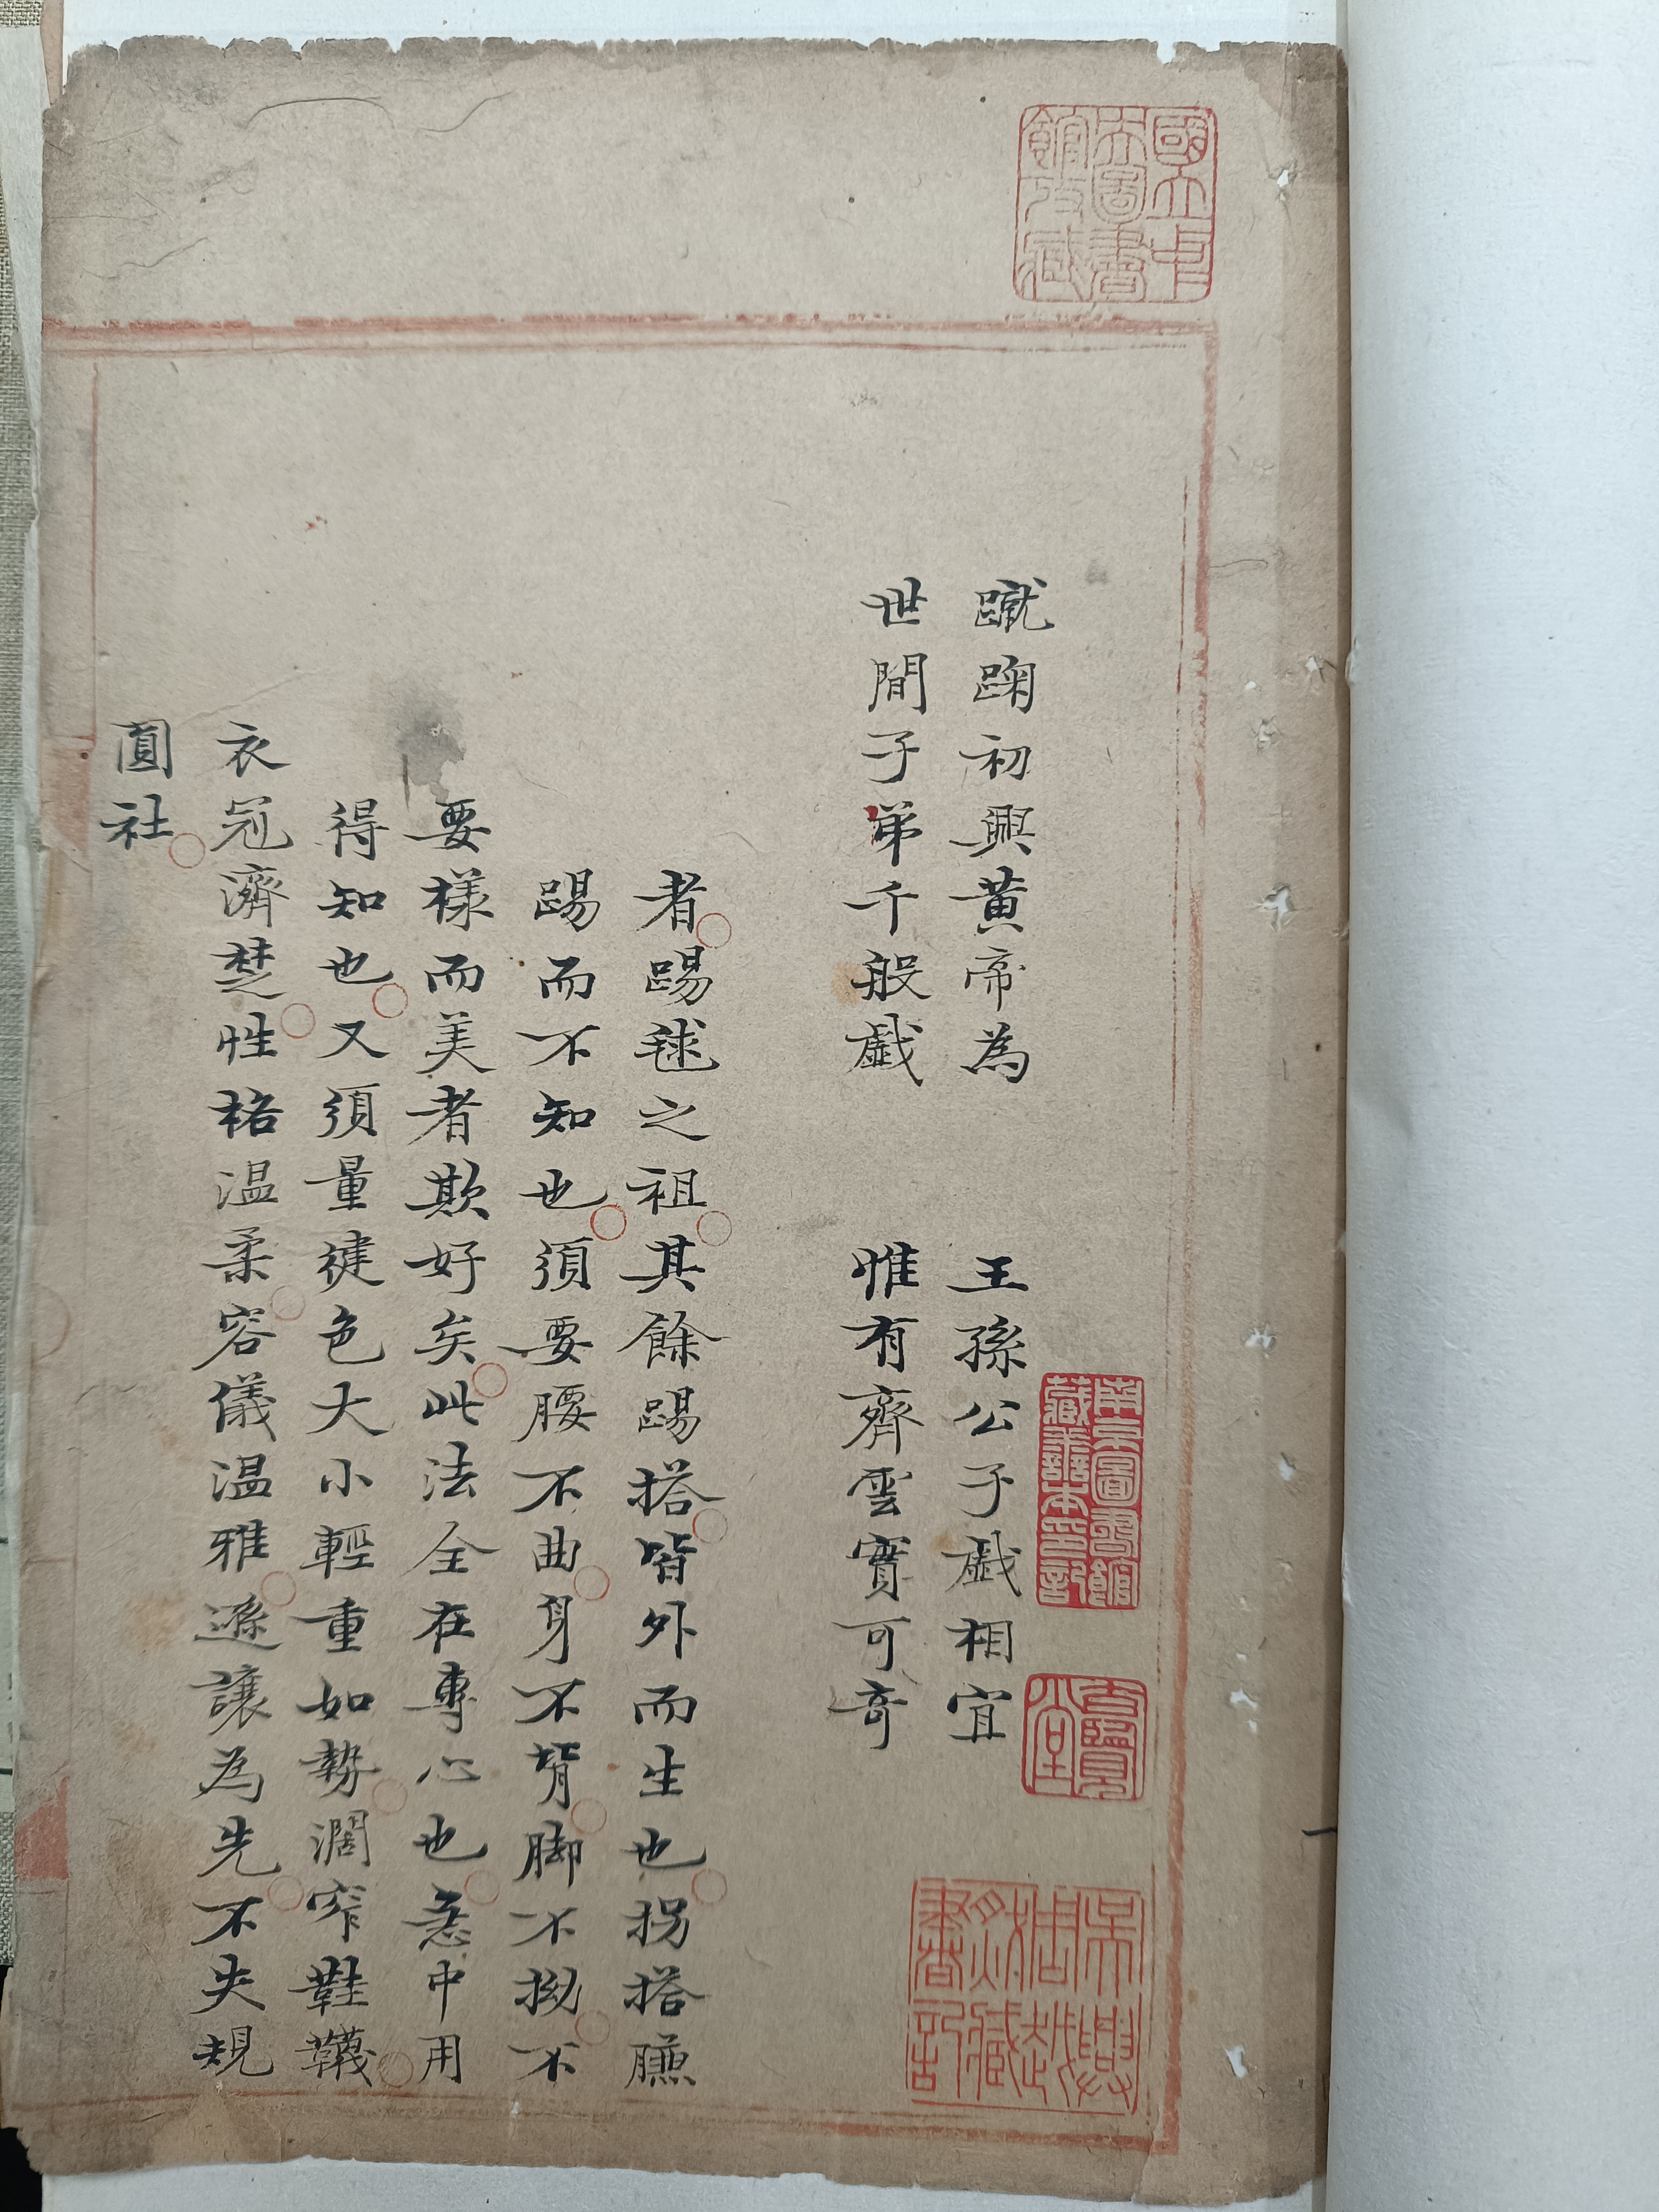 國立中
央圖書
館攷藏
蹴踘初興黃帝為　王孫公子戱相宜
世間子弟千般戱　惟有齊雲實可竒
南京圖書館
藏善本印記
吳興
周越
然藏
書記
者踢毬之祖其餘踢搭皆外而生也拐搭臁
踢而不知也須要腰不曲身不背脚不拗不
要樣而美者欺好矣此法全在專心也意中用
得知也又須量徤色大小輕重如勢濶窄鞋韈
衣冠濟楚性格温柔容儀温雅遜讓為先不失規
圓社